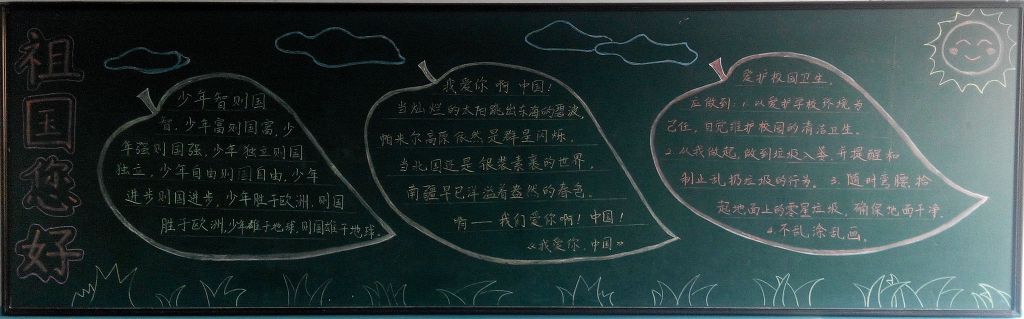 祖国您好
少年智则国
智，少年富则国富，少
年强则国强，少年独立则国
独立，少年自由则国自由，少年
进步则国进步，少年胜于欧洲，则国
胜于欧洲，少年雄于地球，则国雄于地球。
我爱你 啊 中国！
当灿烂的太阳跳出东海的碧波，
帕米尔高原依然是群星闪烁。
当北国还是银装素裹的世界，
南疆早已洋溢着盎然的春色。
啊——我们爱你啊！中国！
《我爱你，中国》
爱护校园卫生，
应做到：1.以爱护学校环境为
己任，自觉维护校园的清洁卫生。
2.从我做起，做到垃圾入篓，并提醒和
制止乱扔垃圾的行为。3.随时弯腰，拾
起地面上的零星垃圾，确保地面干净.
4.不乱涂乱画。